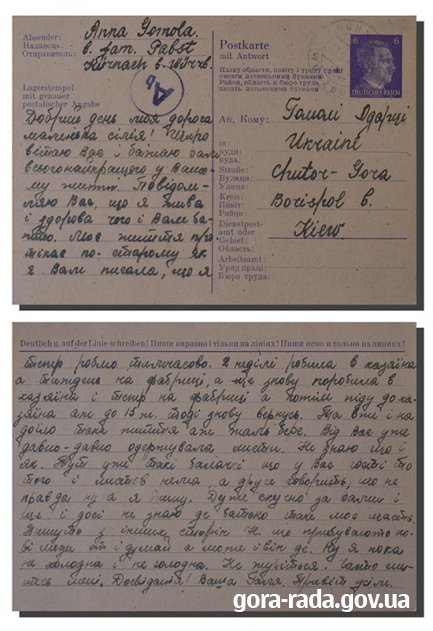 Absender: Anna Gomola.
Надавець: b. fam. Pabst
Отправитель: Kürnach b. Würzb.
Lagerstempel
mit genauer
postalischer Angabe
Ab
Postkarte
mit Antwort
Назву области, повіту і уряду пошти
писати латинськими буквами
Район, область и бюро труда
писать латинскими буквами
6 6
DEUTSCHES REICH
An, Кому: Гомолі Одарці
in: Ukraini
Straße: Chutor-Gora
Вулиця:
Улица:
Kreis: Borispol b.
Повіт:
Район:
Dienstpost- Kiew.
amt oder
Gebiet:
Область:
Arbeitsamt:
Уряд праці:
Бюро труда:
Добрий день моя дорога
маленька сімія! Щиро
вітаю Вас і бажаю вам
всього найкращого у Вашо-
му життю. Повідом-
ляю Вас, що я жива
і здорова чого і Вам ба-
жаю. Моє життя про-
тікає по-старому як
я Вам писала, що я
Deutlich u. auf der Linie schreiben! Пиши виразно і тільки на лініях! Пиши ясно и только на линиях!
тепер роблю тимчасово. 2 неділі робила в хазяїна
а тиждень на фабриці, а ще знову поробила в
хазяїна і тепер на фабриці а потім піду до ха-
зяїна аж до 15 тоді знову вернусь. На
таке життя аж жаль бере. Від Вас уже
давно-давно одержувала листи. Не знаю що і
як. Тут уже такі балачки що у Вас
того і листів нема, а другі говорять, що не
правда ну а я пишу. Дуже скучно за Вами і
ще і досі не знаю де батько таке моє щастя.
Пишуть з інших сторін що прибувають но-
ві люди от і думай а може і він де. Ну я поки
не холодна і не голодна. Не журіться. Часто пи-
шіть мені. Досвідання! Ваша Галя. Привіт усім.
gora-rada.gov.ua